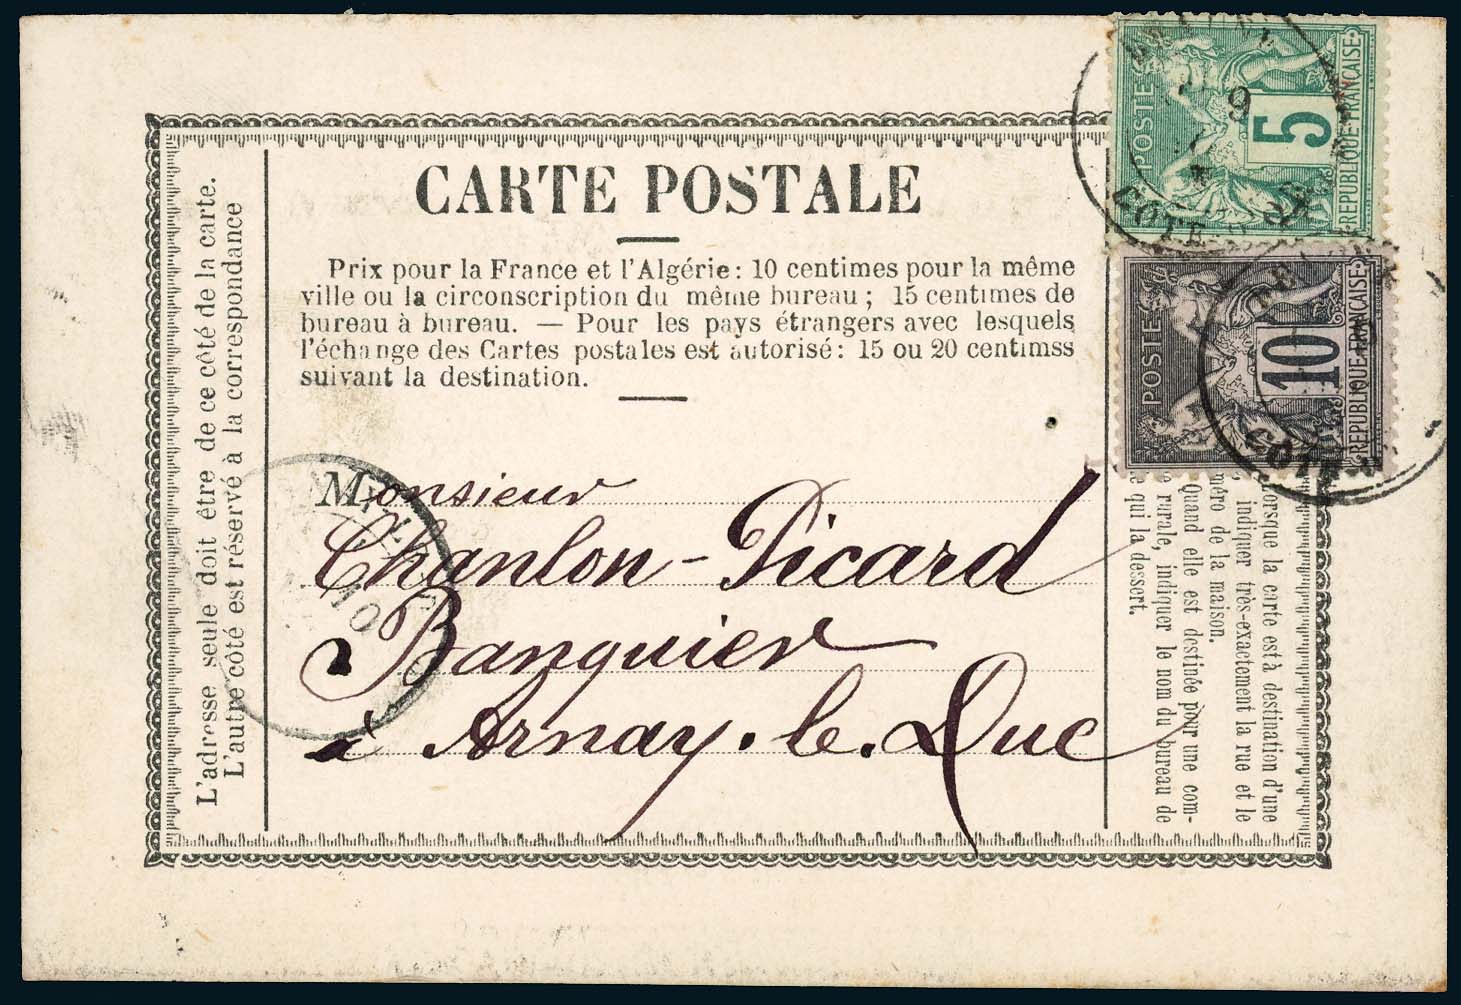 CARTE POSTALE
Prix pour la France et l'Algérie : 10 centimes pour la même
ville ou la circonscription du même bureau ; 15 centimes de
bureau à bureau. — Pour les pays étrangers avec lesquels
l'échange des Cartes postales est autorisé : 15 ou 20 centimss
suivant la destination.
Monsieur
Chanlon-Picard
Banquier
à Arnay-le-Duc
L'adresse seule doit être de ce côté de la carte.
L'autre côté est réservé à la correspondance
Lorsque la carte est à destination d'une
, indiquer très-exactement la rue et le
méro de la maison.
Quand elle est destinée pour une com-
e rurale, indiquer le nom du bureau de
e qui la dessert.
POSTE
5
REPUBLIQUE FRANÇAISE
9
COTE-D'OR
POSTE
10
REPUBLIQUE FRANÇAISE
COTE-D
10